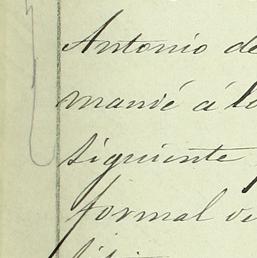 Antonio de
manié á lo
siguiente
formal ve